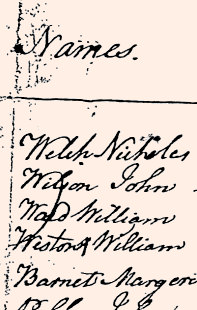 Names.
Welsh Nicholas
Wilson John
Ward William
Weston William
Barnet Margere